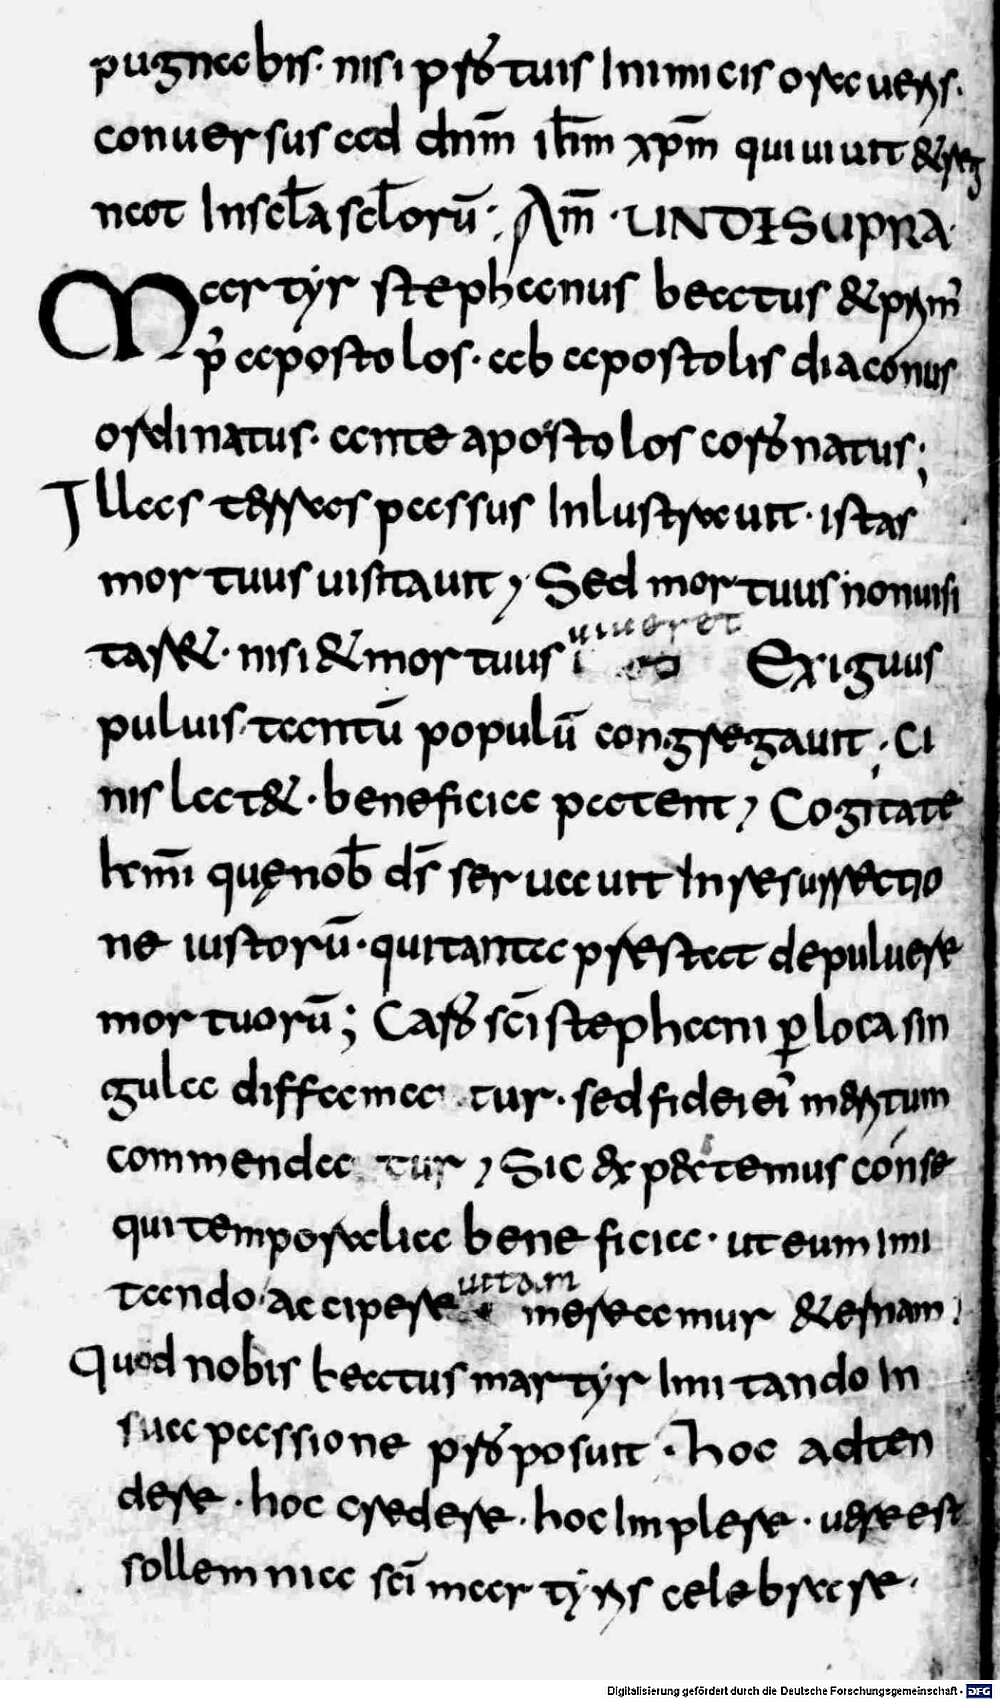 pugnabis· nisi pro tuis Inimicis oraueris·
conuersus ad dnm̄ ih̄m xp̄m qui uiuit & reg
nat In scl̄a scl̄orū; Am̄· UNDE SUPRA·
Martyr stephanus beatus & prim'
p' apostolos· ab apostolis diaconus
ordinatus· ante apostolos coronatus;
Illas terras passus Inlustrauit· istas
mortuus uisitauit, Sed mortuus non uisi
tar&· nisi & mortuus uiueret Exiguus
puluis· tantū populū congregauit; Ci
nis lat&· beneficia patent, Cogitate
km̄i que nob̄ ds̄ seruauit In resurrectio
ne iustorū· qui tanta prestat de puluere
mortuorū; Caro scī stephani p̱ loca sin
gula diffama tur· sed fidei ei' meritum
commenda tur, Sic exp&temus conse
qui temporalia beneficia· ut eum imi
tando accipere uitam mereamur &ernam;
Quod nobis beatus martyr Imitando In
sua passione proposuit· hoc adten
dere· hoc credere· hoc Implere· uere est
sollemnia scī martyris celebrare·
Digitalisierung gefördert durch die Deutsche Forschungsgemeinschaft - DFG